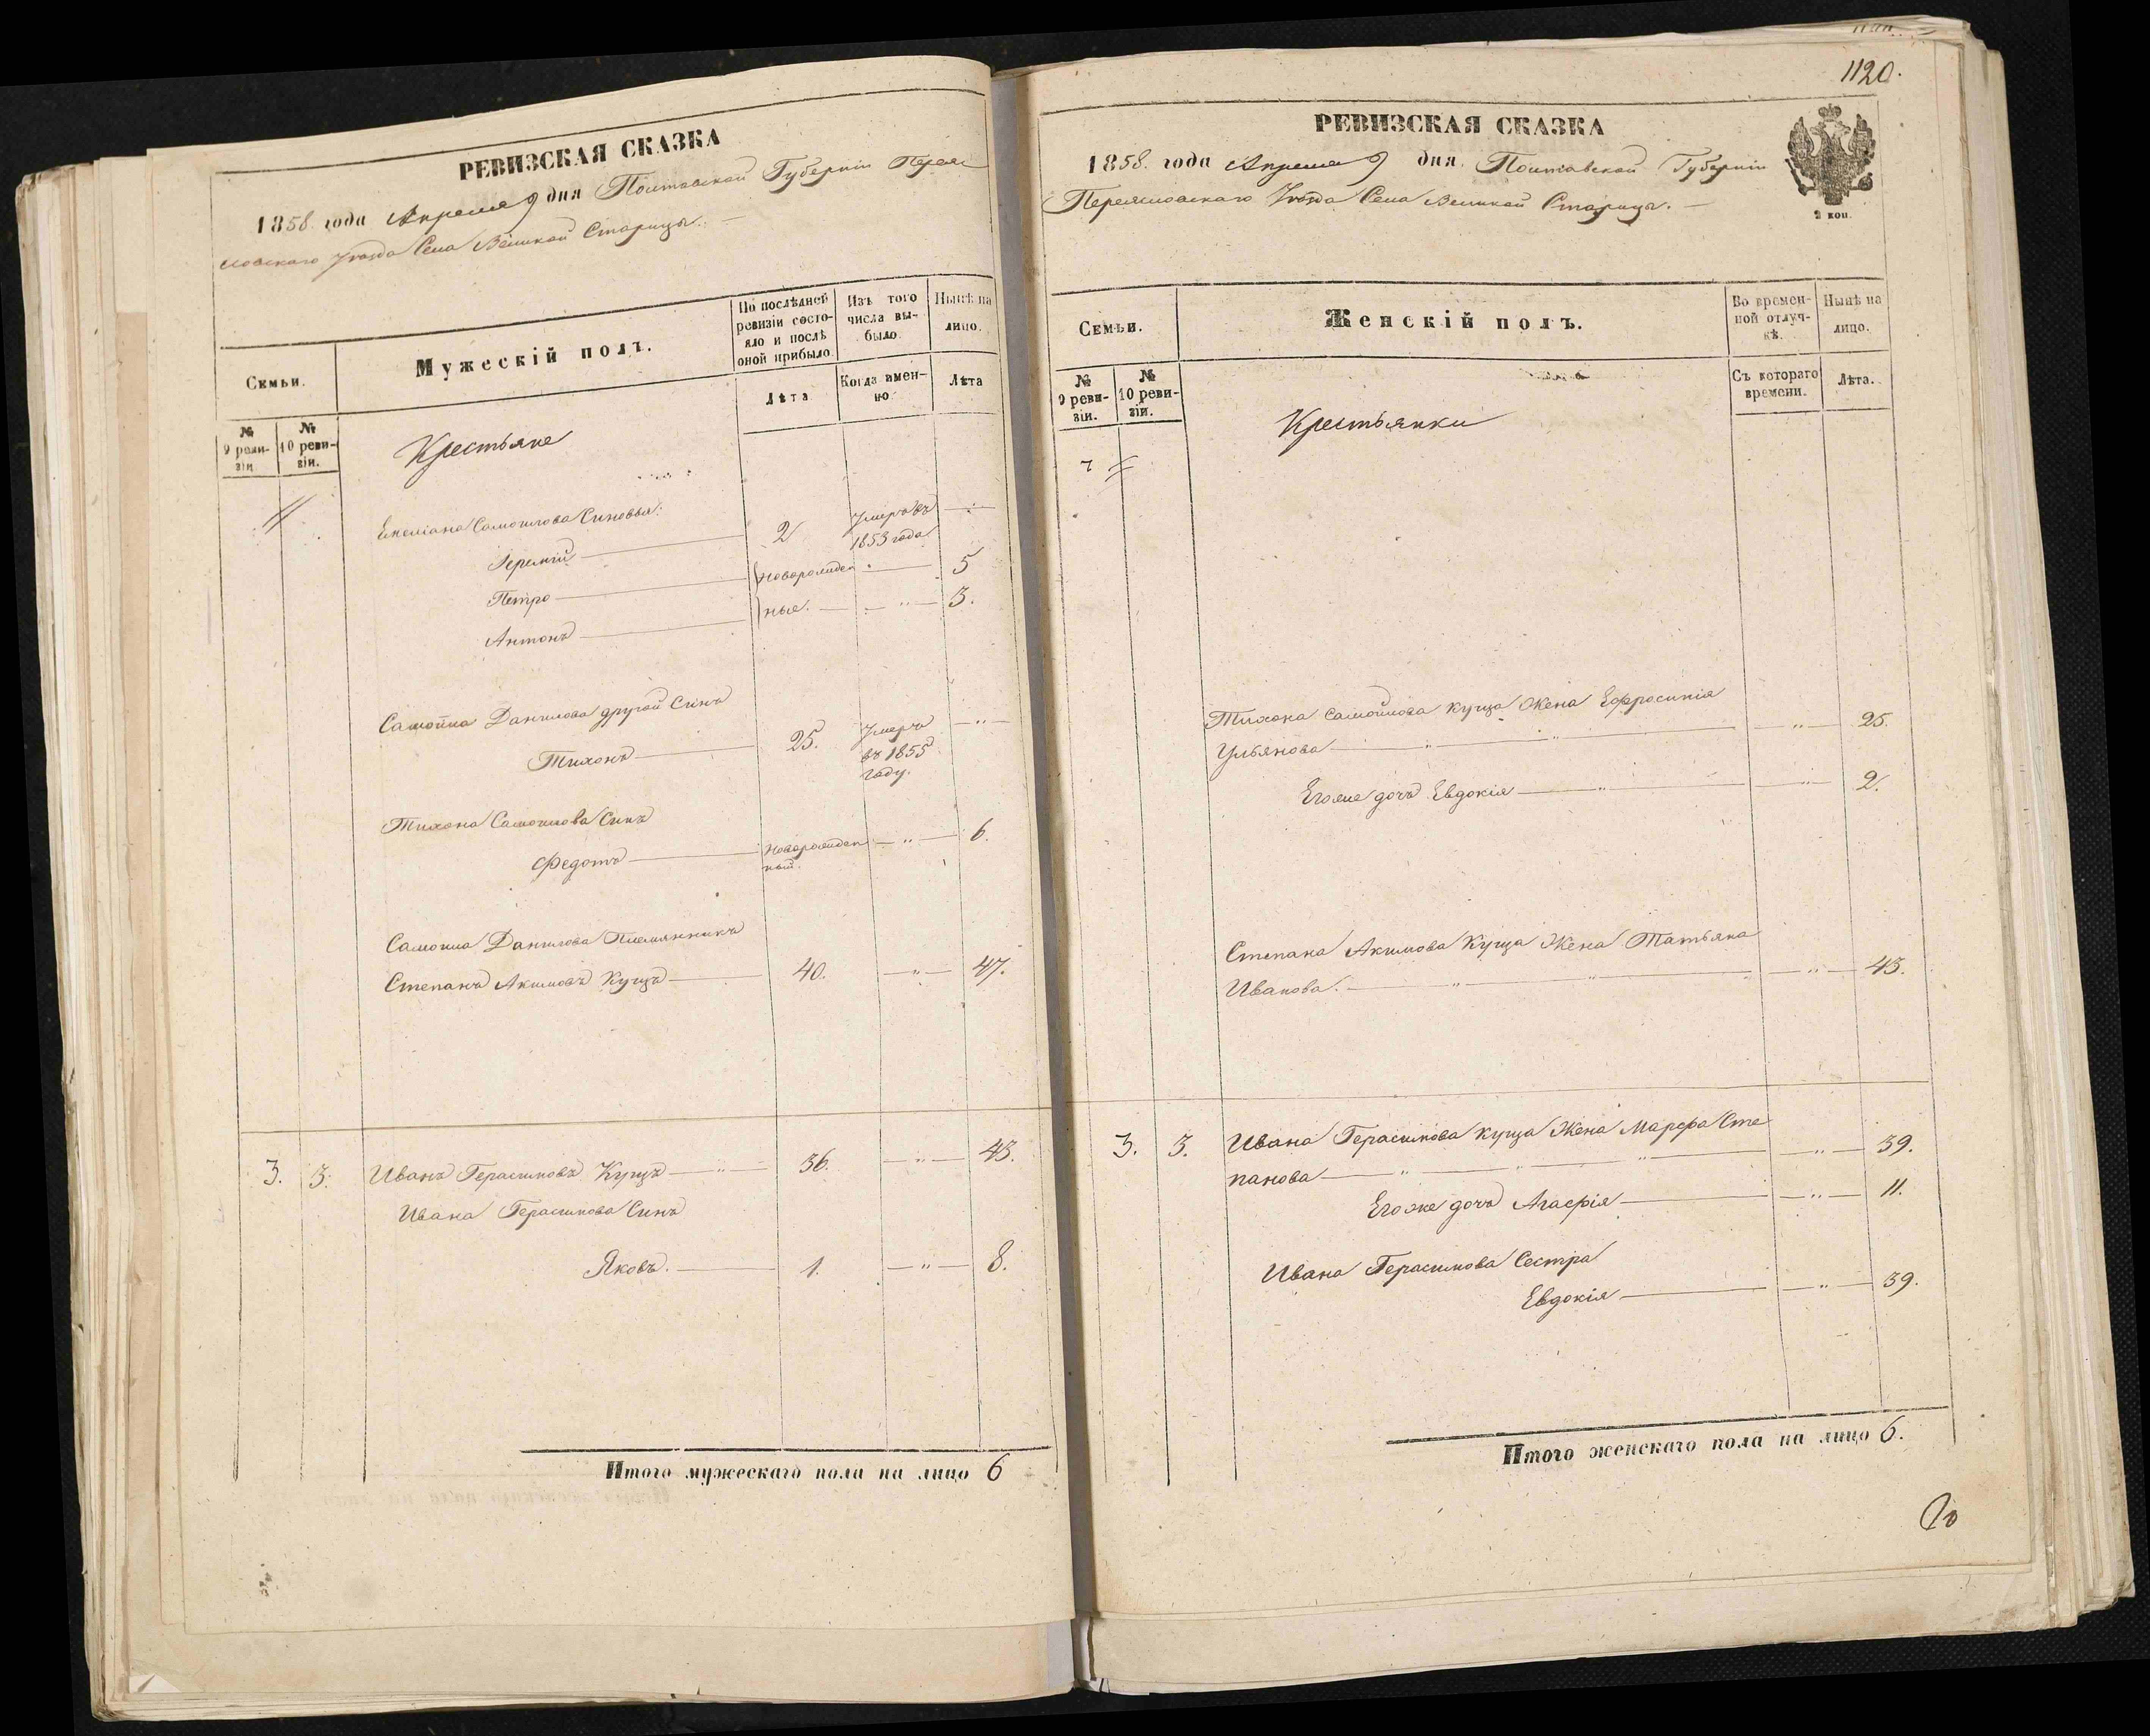 РЕВИЗСКАЯ СКАЗКА
1858 года Апреля 9 дня Полтавской Губерніи Перея
словскаго Уезда Села Великой Старицы.
Семьи.
Мужескій полъ.
По послѣдней ревизіи состояло и послѣ оной прибыло.
Изъ того числа выбыло.
Нынѣ на лицо.
№ 9 ревизіи.
№ 10 ревизіи.
Лѣта
Когда именно
Лѣта
Крестьяне
Емеліана Самоилова Сыновья:
Іеремій 2 Умеръ въ 1853 года
Петро Новорожден 5
Антонъ ные. 3.
Самойла Данилова другой Сынъ
Тихонъ 25. Умеръ въ 1855 году.
Тихона Самоилова Сынъ
Федотъ Новорожден ный. 6.
Самоила Данилова Племянникъ
Степанъ Акимовъ Куцъ 40. 47.
3. 3. Иванъ Герасимовъ Куцъ 36. 43.
Ивана Герасимова Сынъ
Яковъ. 1. 8.
Итого мужескаго пола на лицо 6
1120.
РЕВИЗСКАЯ СКАЗКА
1858 года Апреля 9 дня Полтавской Губерніи
Переяславскаго Уезда Села Великой Старицы.
2 коп.
Семьи.
Женскій полъ.
Во временной отлучкѣ.
Нынѣ на лицо.
№ 9 ревизіи.
№ 10 ревизіи.
Съ котораго времени.
Лѣта.
Крестьянки
Тихона Самойлова Куца Жена Ефросинія
Ульянова 25.
Егоже дочъ Евдокія 2.
Степана Акимова Куца Жена Татьяна
Иванова. 43.
3. 3. Ивана Герасимова Куца Жена Марфа Сте
панова 39.
Егоже дочъ Агафія 11.
Ивана Герасимова Сестра
Евдокія 39.
Итого женскаго пола на лицо 6.